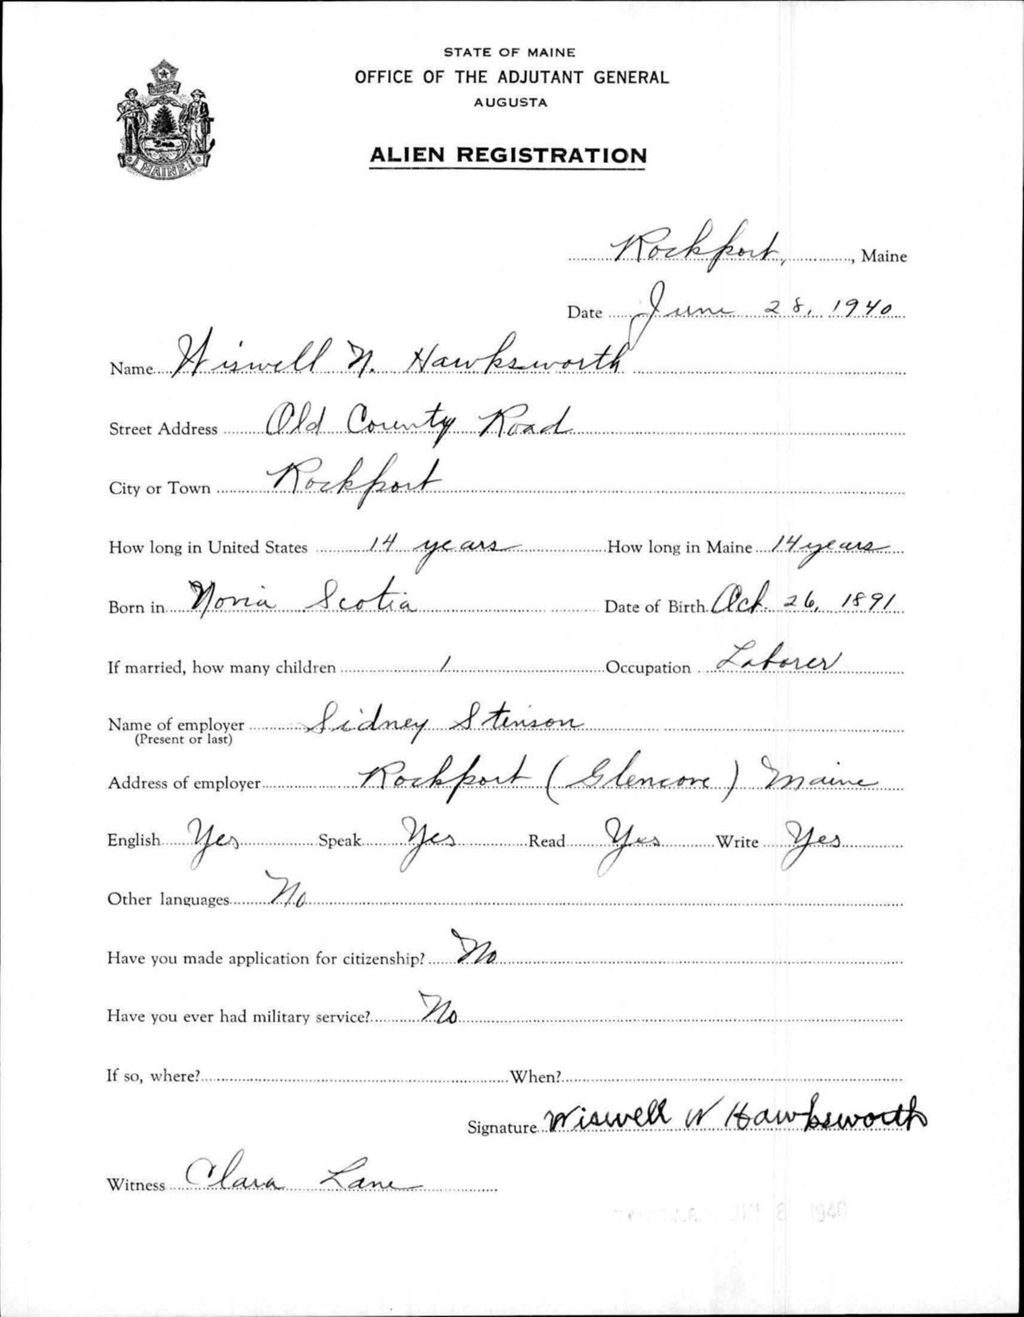 STATE OF MAINE
OFFICE OF THE ADJUTANT GENERAL
AUGUSTA
ALIEN REGISTRATION
MAINE
Rockport, , Maine
Date June 28, 1940
Name Wiswell N. Hawksworth
Street Address Old County Road
City or Town Rockport
How long in United States 14 years How long in Maine 14 years
Born in Novia Scotia Date of Birth Oct. 26, 1891
If married, how many children 1 Occupation Laborer
Name of employer Sidney Stinson
(Present or last)
Address of employer Rockport (Glencove) Maine
English Yes Speak Yes Read Yes Write Yes
Other languages No
Have you made application for citizenship? No
Have you ever had military service? No
If so, where? When?
Signature Wiswell N Hawksworth
Witness Clara Lane
8 1940